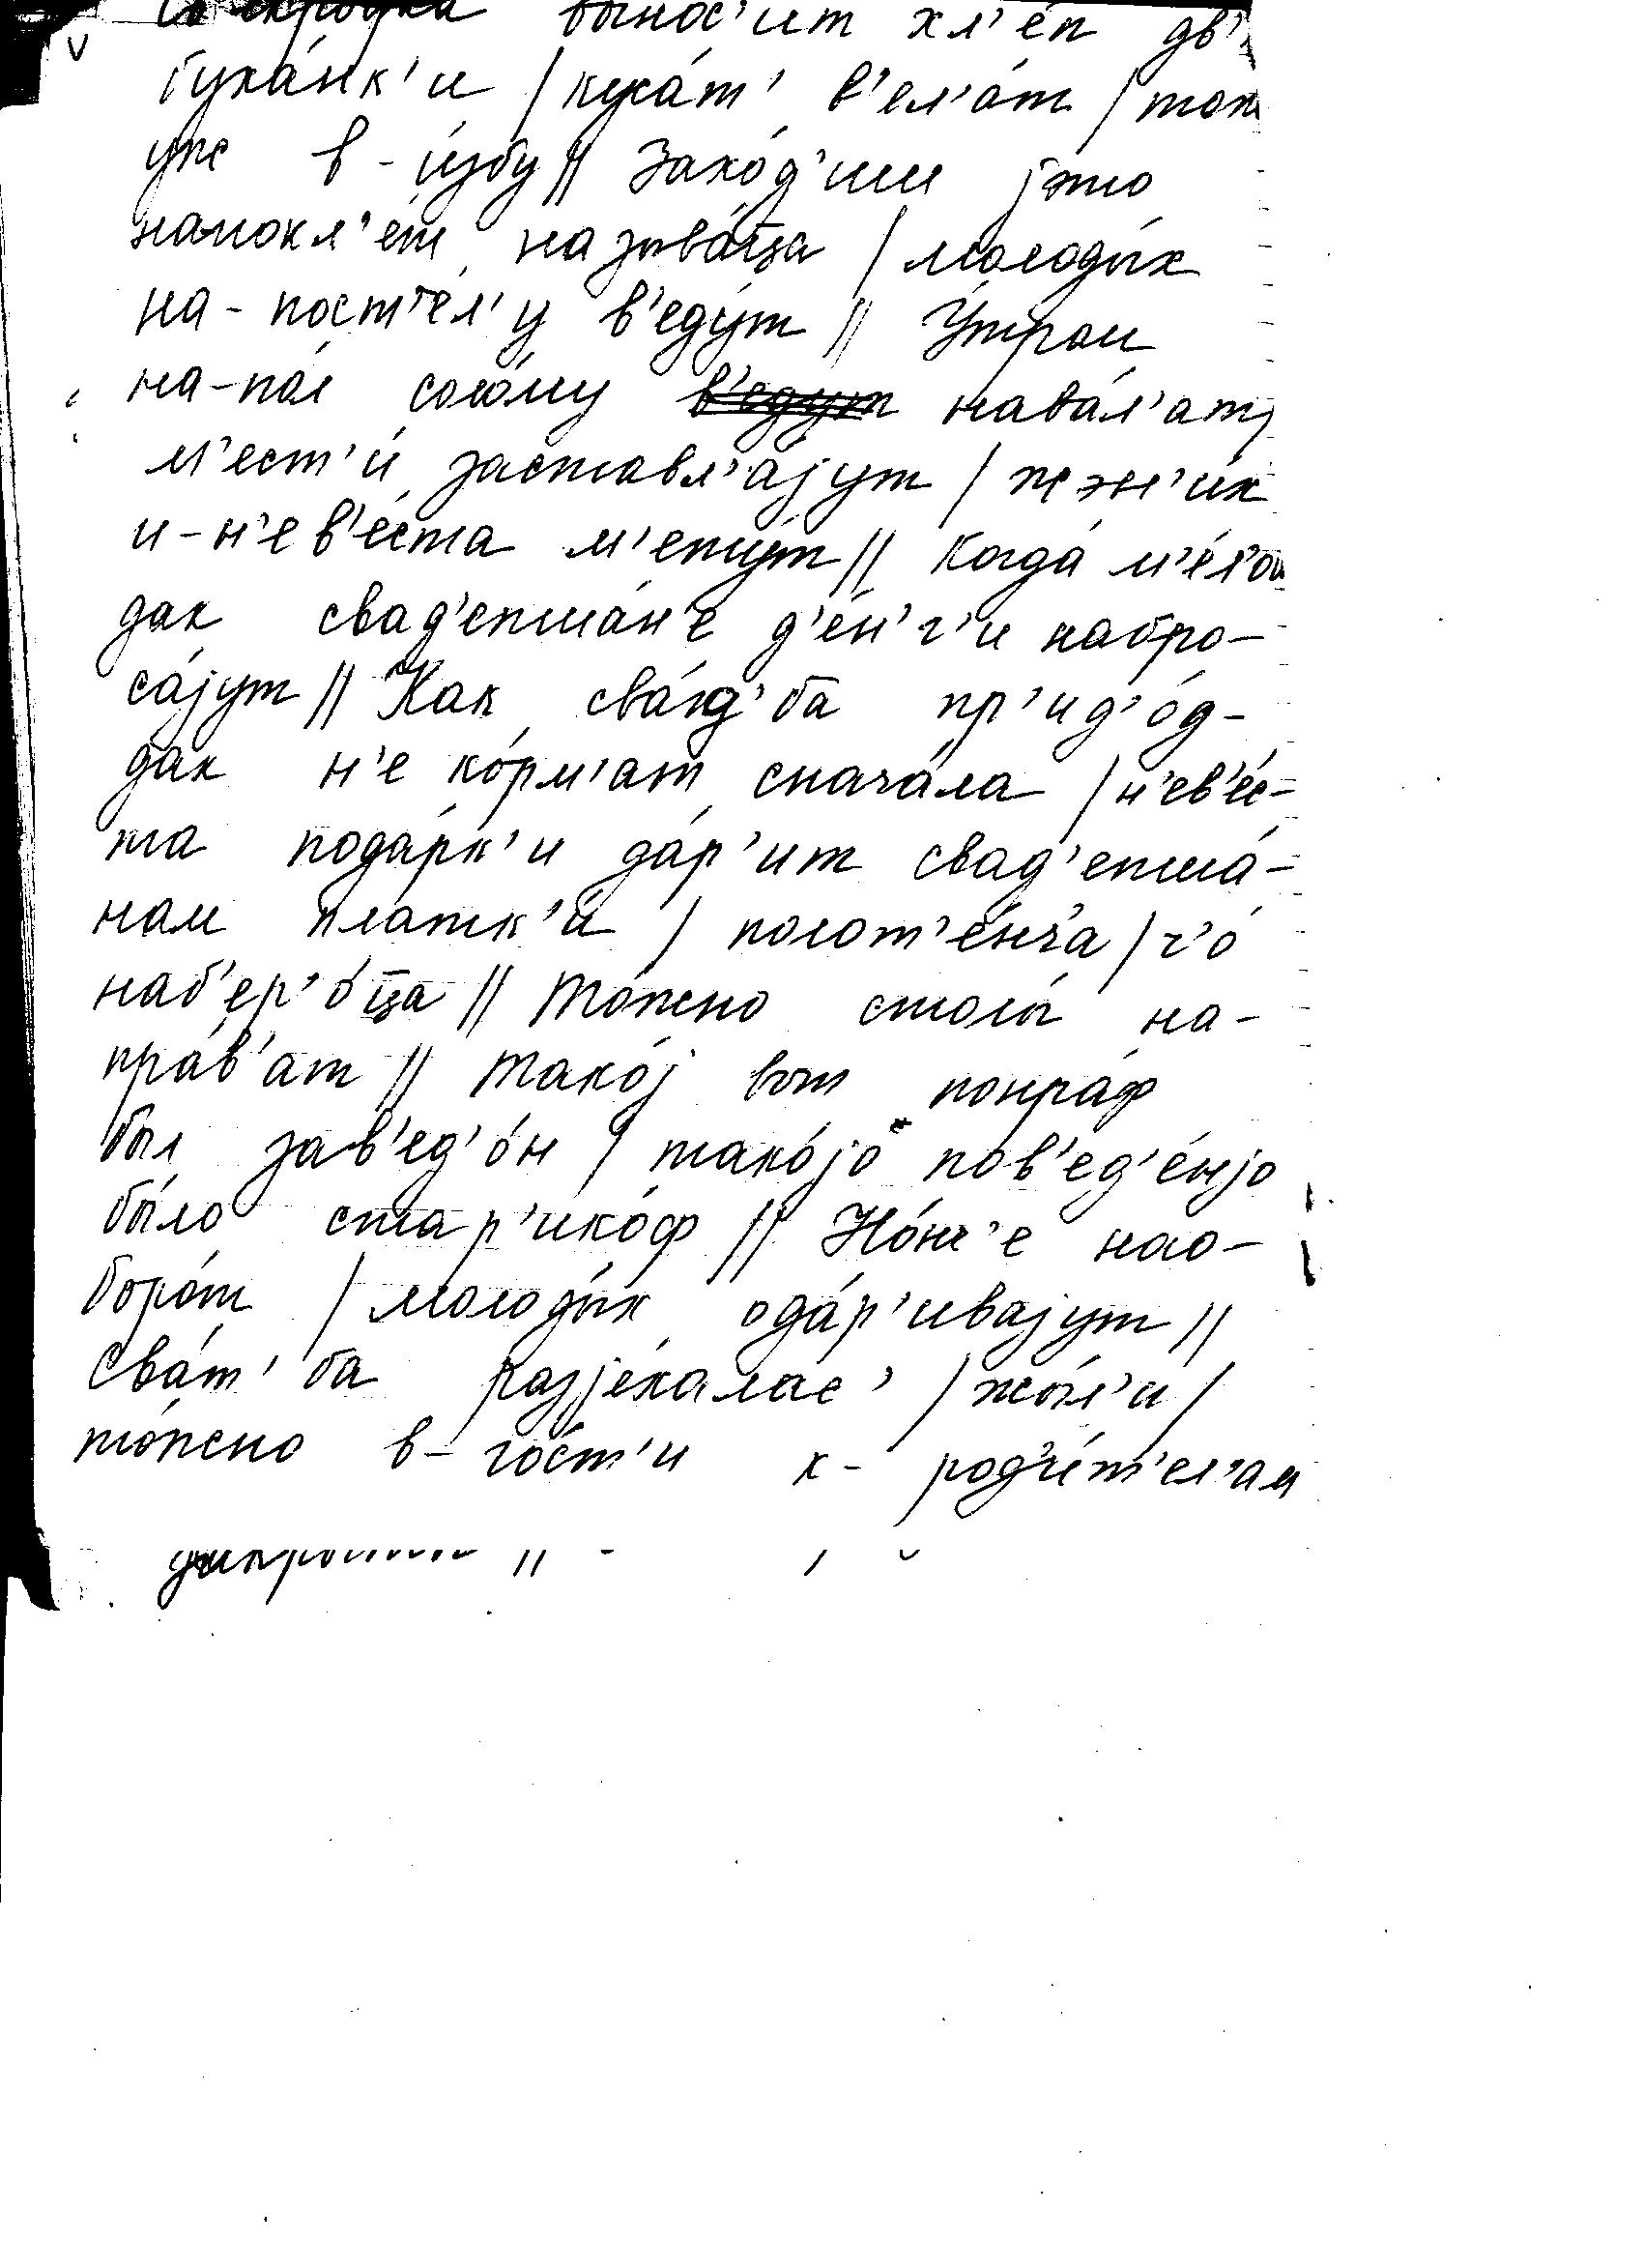 вынос'ит хл'е́п дв'
буха́нк'и / куса́т' в'ел'а́т / тож
уж в-и́збу // Захо́д'им јэто
намокл'е́т называ́ц̅ца / молоды́х
на-пост'е́л'у в'еду́т // У́тром
на-по́л соло́му в'едут нава́л'ат,
м'ест'и́ заставл'а́јут / жэн'и́х
и-н'ев'е́ста м'ету́т // Когда́ м'е́л'ом
дак свад'епша́н'е д'е́н'г'и набро-
са́јут // Как сва́д'ба пр'ид'о́д-
дак н'е ко́рм'ат снача́ла / н'ев'е́с-
та пода́рк'и да́р'ит свад'епша́-
нам платк'и́ / полот'е́нч'а / ч'о́
наб'ер'о́ц̅ца // То́жно столы́ на-
пра́в'ат // Тако́ј вот понра́ф
был зав'ед'о́н / тако́јо пов'ед'е́нјо
бы́ло стар'ико́ф // Но́нч'е нао-
боро́т / молоды́х ода́р'ивајут //
Сва́т'ба разје́халас' / жы́л'и /
то́жно в-го́ст'и к-род'и́т'ел'ам